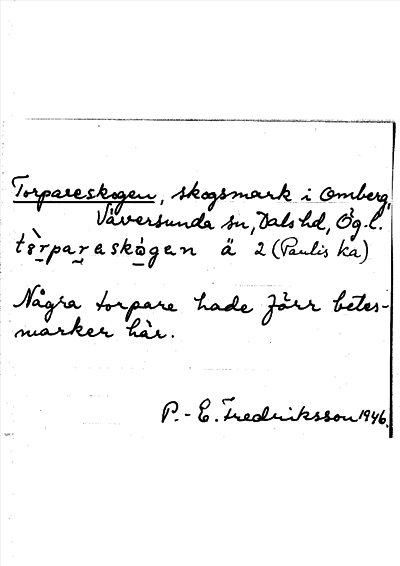 Torpareskogen, skogsmark i Omberg,
Väversunda sn, Dals hd, Ög. l.
tòrparaskógen ä 2 (Paulis ka)
Några torpare hade förr betes-
marker här.
P.-E. Fredriksson 1946.